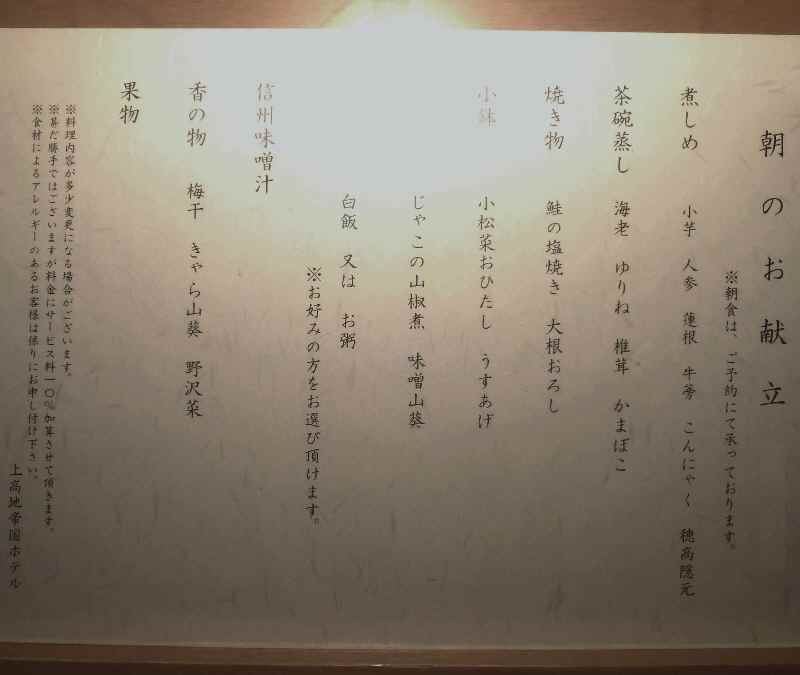 朝のお献立
※朝食は、ご予約にて承っております。
煮しめ 小芋 人参 蓮根 牛蒡 こんにゃく 穂高隠元
茶碗蒸し 海老 ゆりね 椎茸 かまぼこ
焼き物 鮭の塩焼き 大根おろし
小鉢 小松菜おひたし うすあげ
じゃこの山椒煮 味噌山葵
白飯 又は お粥
※お好みの方をお選び頂けます。
信州味噌汁
香の物 梅干 きゃら山葵 野沢菜
果物
※料理内容が多少変更になる場合がございます。
※甚だ勝手ではございますが料金にサービス料一〇%加算させて頂きます。
※食材によるアレルギーのあるお客様は係りにお申し付け下さい。
上高地帝国ホテル